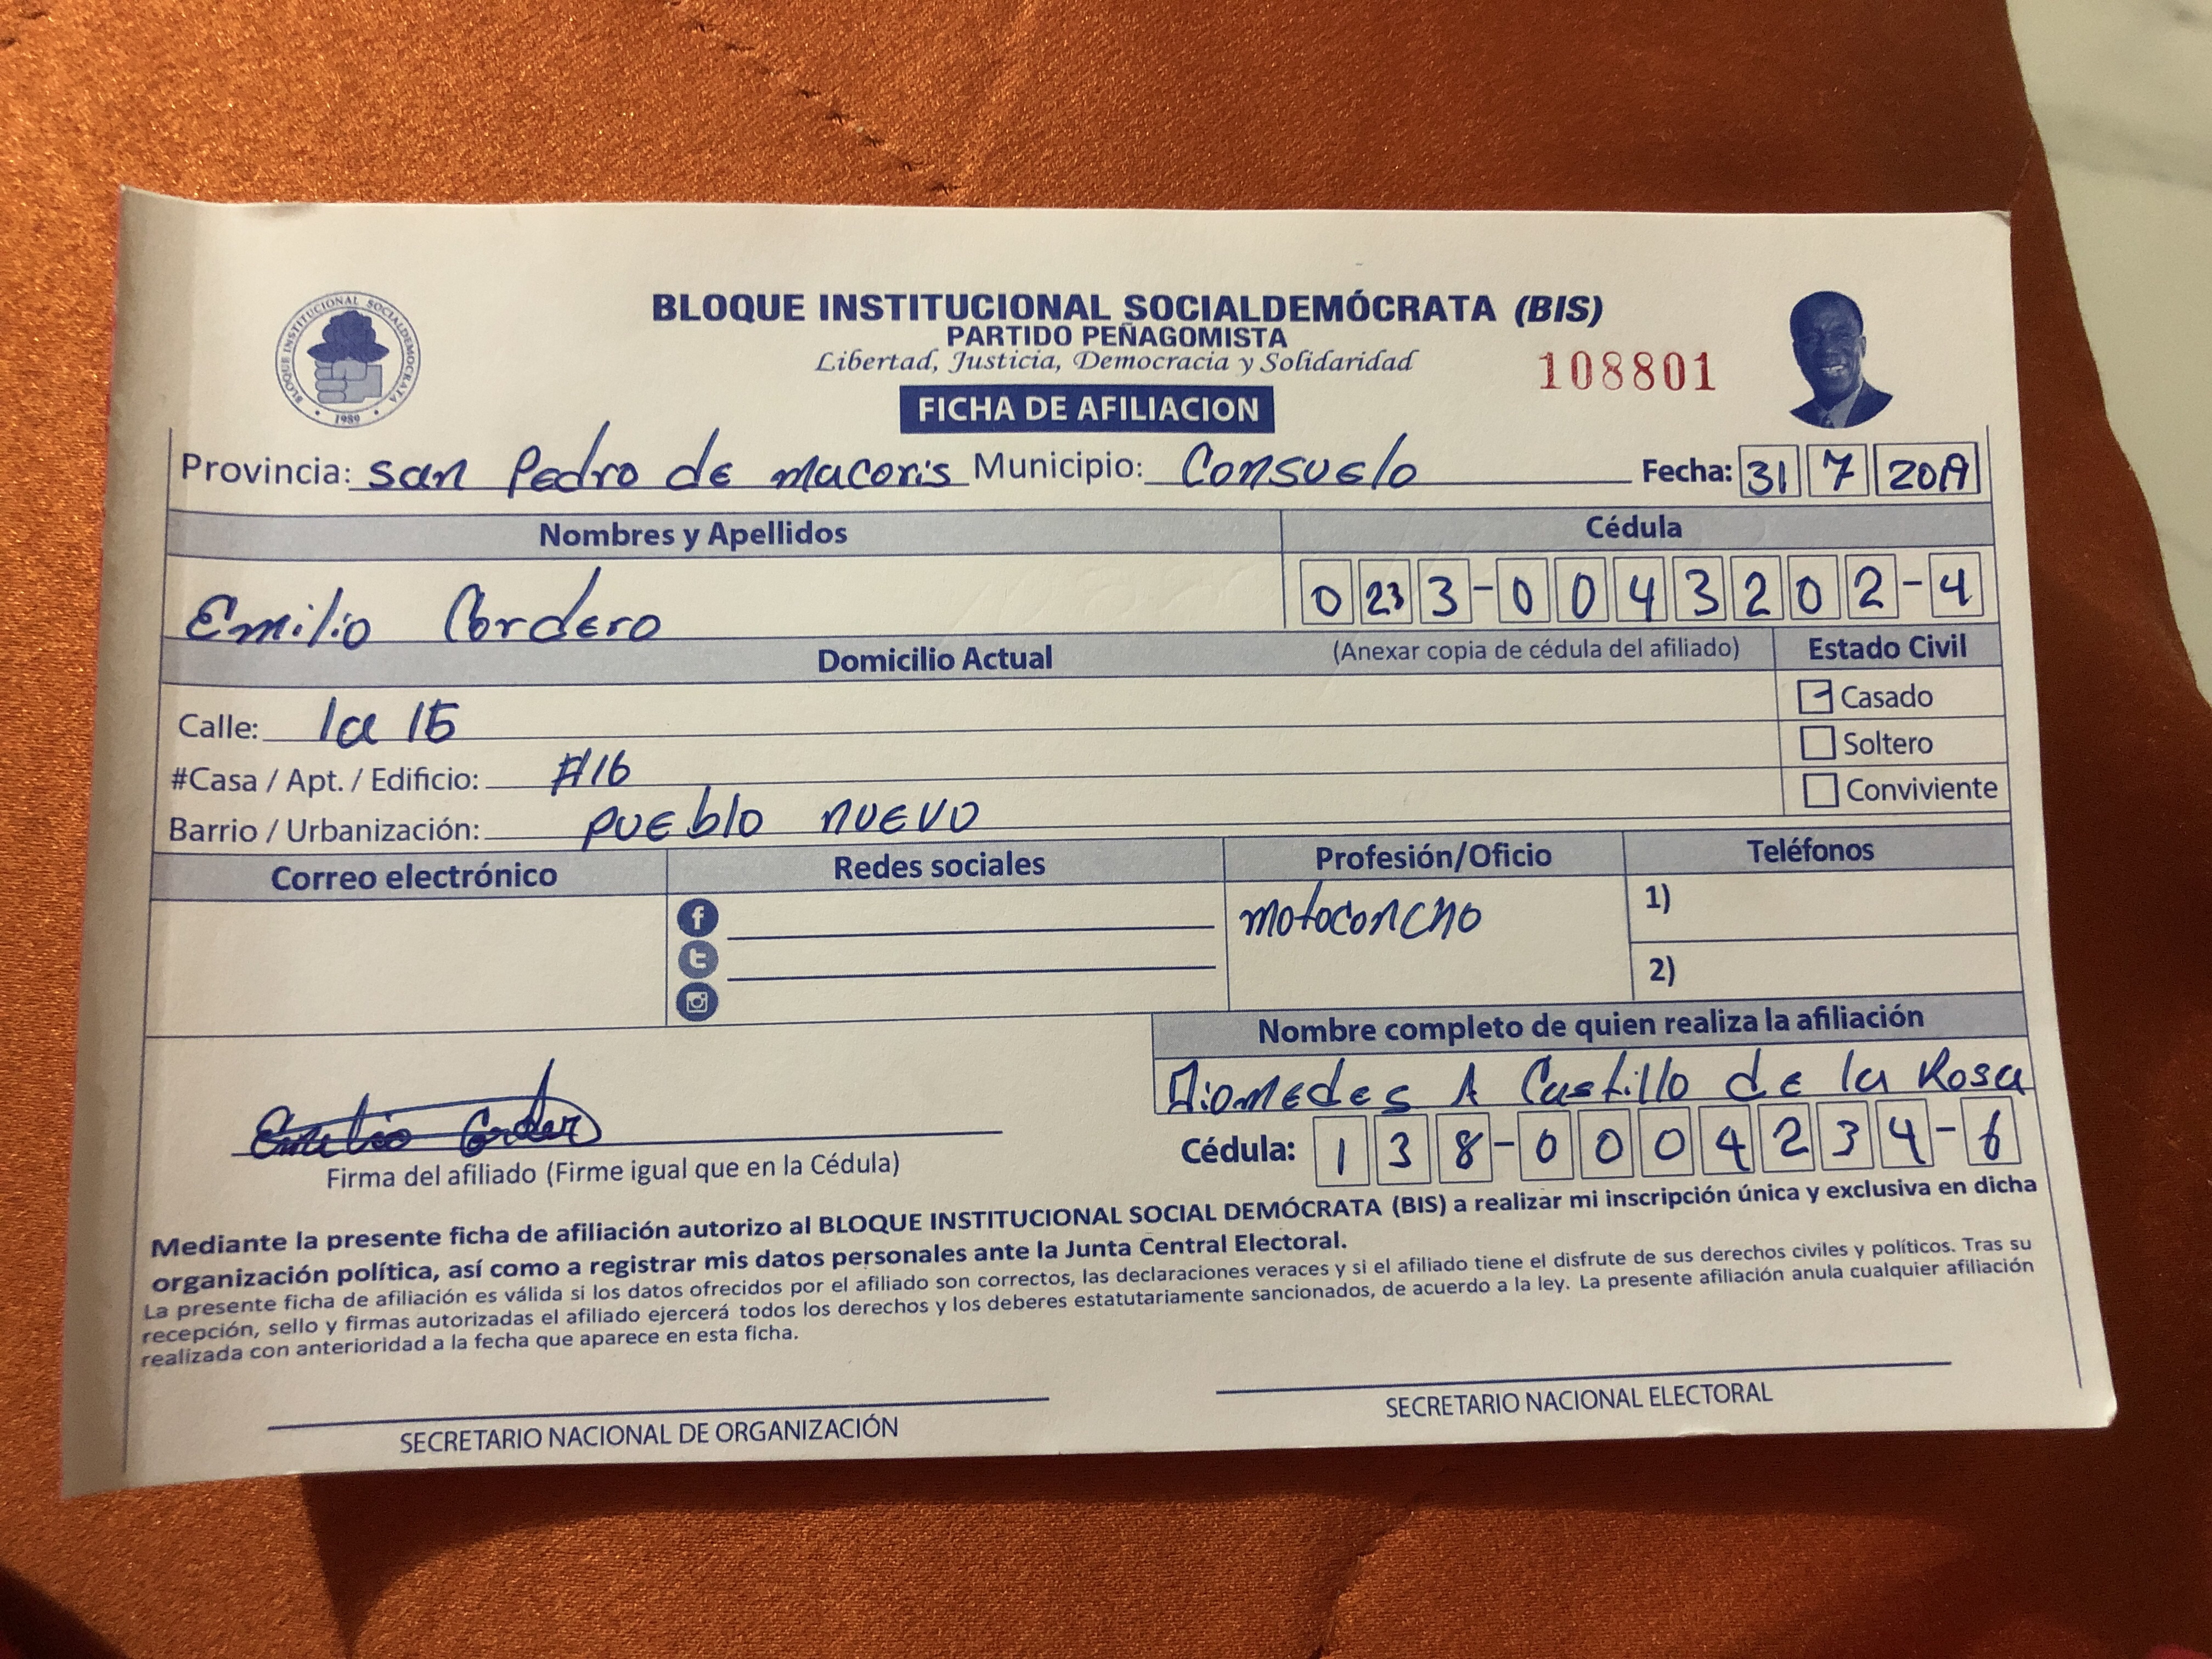 BLOQUE INSTITUCIONAL SOCIALDEMOCRATA
1989
BLOQUE INSTITUCIONAL SOCIALDEMÓCRATA (BIS)
PARTIDO PEÑAGOMISTA
Libertad, Justicia, Democracia y Solidaridad
108801
FICHA DE AFILIACION
Provincia: san Pedro de macoris Municipio: Consuelo Fecha: 31 7 2019
Nombres y Apellidos Cédula
Emilio Cordero 0 23 3-0043202-4
Domicilio Actual (Anexar copia de cédula del afiliado) Estado Civil
Calle: la 15 Casado
#Casa / Apt. / Edificio: #16 Soltero
Barrio / Urbanización: pueblo nuevo Conviviente
Correo electrónico Redes sociales Profesión/Oficio Teléfonos
motoconcho 1)
2)
Nombre completo de quien realiza la afiliación
Diomedes A Castillo de la Rosa
Emilio Corder
Cédula: 138-0004234-6
Firma del afiliado (Firme igual que en la Cédula)
Mediante la presente ficha de afiliación autorizo al BLOQUE INSTITUCIONAL SOCIAL DEMÓCRATA (BIS) a realizar mi inscripción única y exclusiva en dicha
organización política, así como a registrar mis datos personales ante la Junta Central Electoral.
La presente ficha de afiliación es válida si los datos ofrecidos por el afiliado son correctos, las declaraciones veraces y si el afiliado tiene el disfrute de sus derechos civiles y políticos. Tras su
recepción, sello y firmas autorizadas el afiliado ejercerá todos los derechos y los deberes estatutariamente sancionados, de acuerdo a la ley. La presente afiliación anula cualquier afiliación
realizada con anterioridad a la fecha que aparece en esta ficha.
SECRETARIO NACIONAL DE ORGANIZACIÓN SECRETARIO NACIONAL ELECTORAL